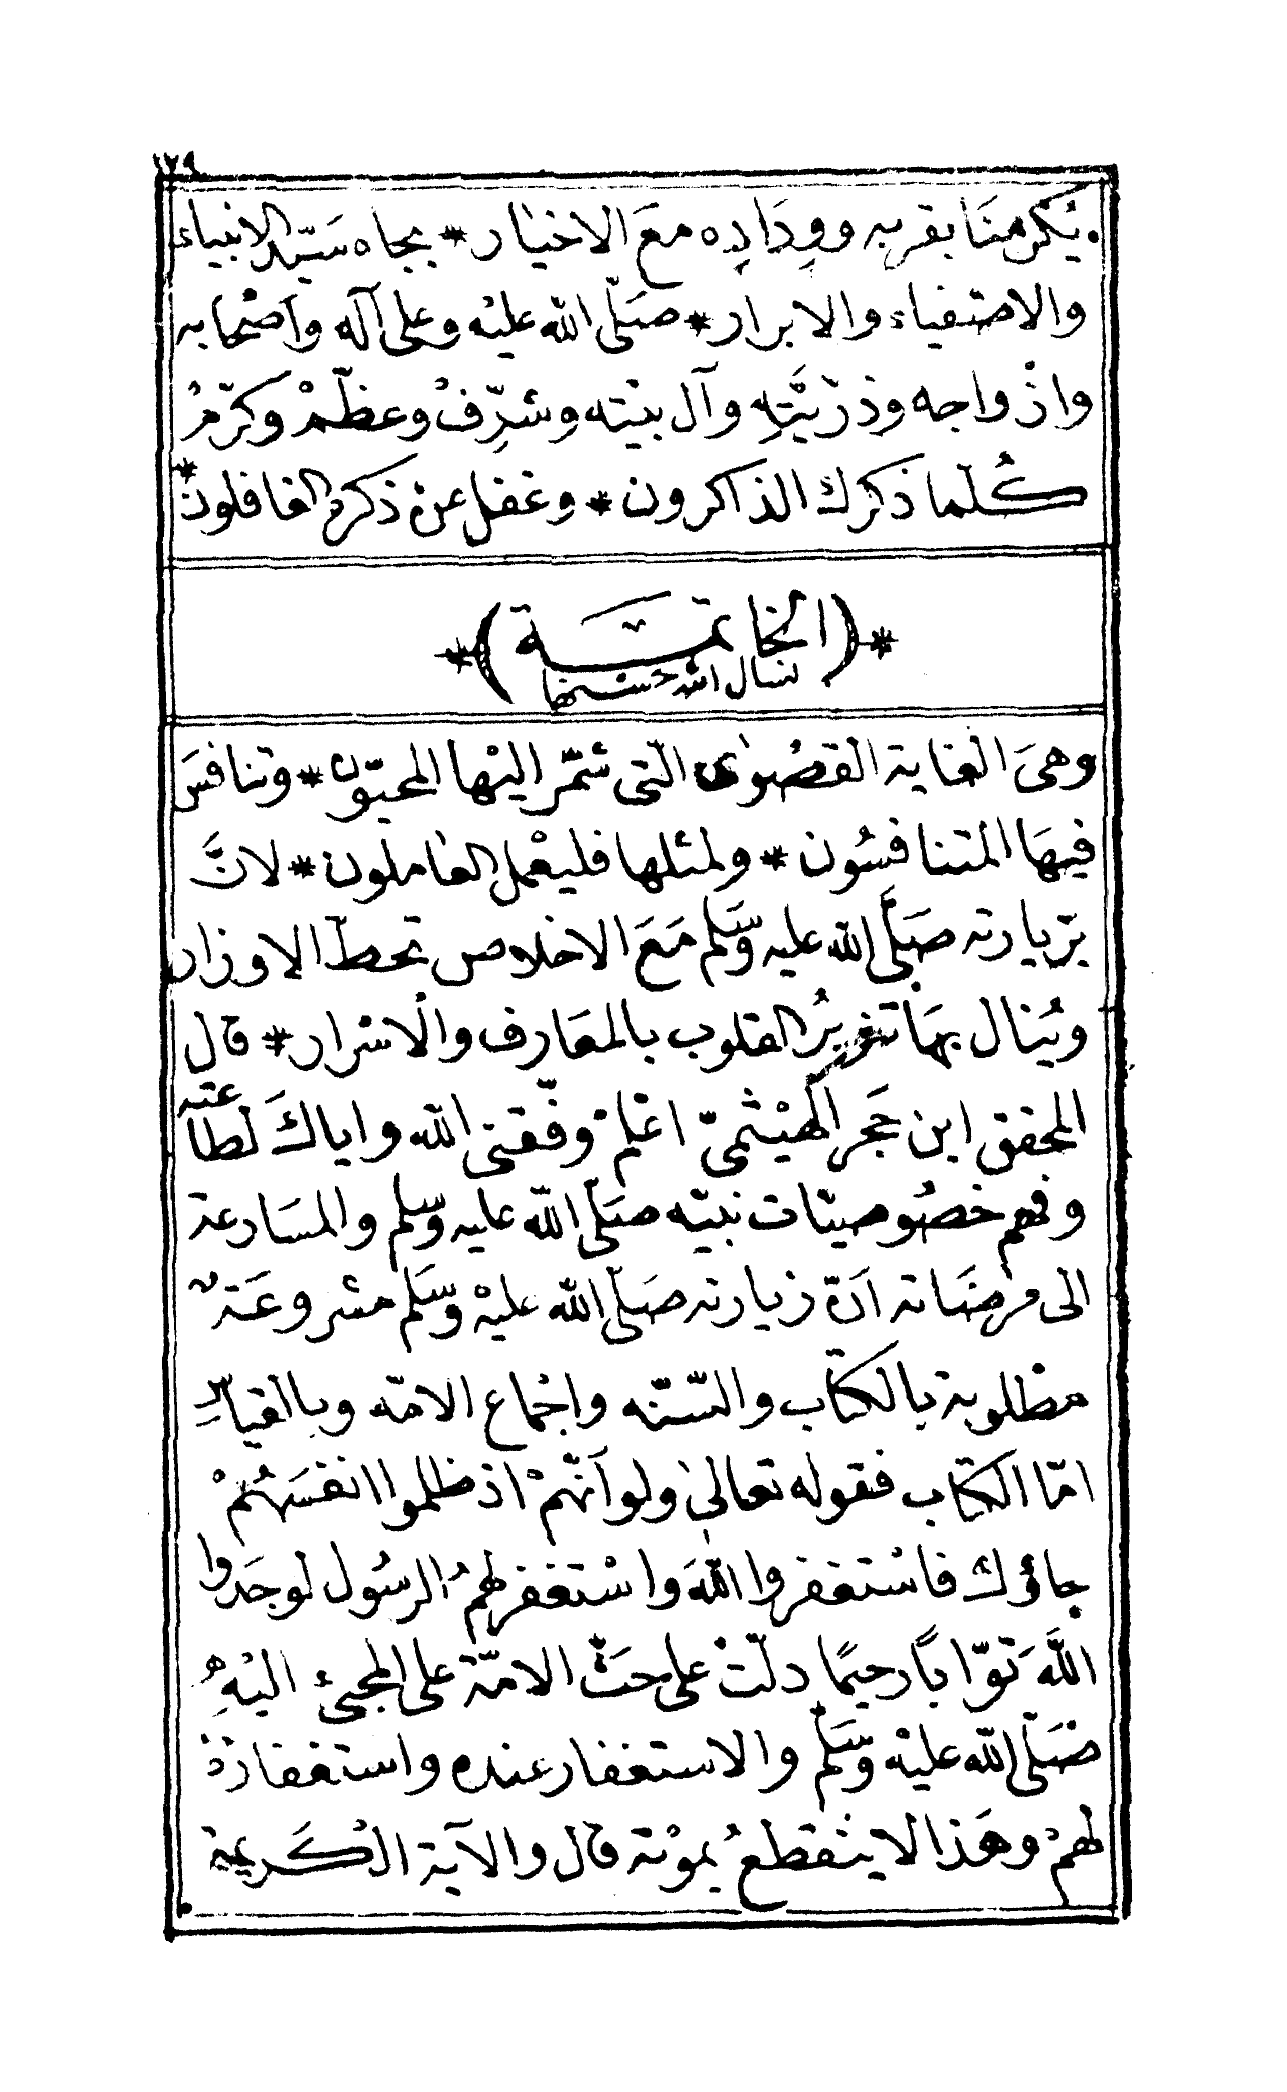 ١٧٩
يُكْرِمَنَا بقربه وَوِدَادِه مَعَ الاخيار * بجاه سَيّد الانبياء
والاصفياء والابرار * صَلّى الله عليْه وعلى آله وأصْحابه
وازْواجه وذرّيَّتِه وآل بيْته وشرِّفْ وعظّمْ وكرّمْ
كُلّما ذكرك الذاكرون * وغفل عنْ ذكره الغافلون *
* ( الخاتمة ) *
نسال الله حسنها
وهىَ الغاية القصْوىٰ التى شمّر اليْها المحبّون * وتنافسَ
فيهَا المتنافسُون * ولمثلها فليعْمل العاملون * لانَّ
بزيارته صَلَّى الله عليه وسَلّم مَعَ الاخلاص تحطّ الاوزار
ويُنال بهَا تنويرُ القلوب بالمعَارف والاسْرار * قال
المحقق ابن حَجر الهيْثمىّ اعْلمْ وفّقنى الله واياكَ لطاعته
وفهم خصُوصيّات نبيّه صَلّى الله عليه وسّلم والمسَارعة
الى مرضَاته أنّ زيارته صَلّى الله عليْه وسَلّم مشروعَةٌ
مطلوبة بالكتاب والسّنّه واجْماع الامّه وبالقياسِ
امّا الكتاب فقوله تعالىٰ ولو أنّهمْ اذ ظلموا انفسَهُمْ
جاؤك فاسْتغفروا اللهَ واسْتغفر لهمُ الرسُول لوجَدوا
اللهَ توّابًا رحيمًا دلّتْ على حَثّ الامّة على المجىء اليْهِ
صَلّى الله عليْه وسَلّم والاستغفار عنده واستغفارهْ
لهمْ وهَذا لا ينْقطعُ بموْته قال والآية الكَريمة